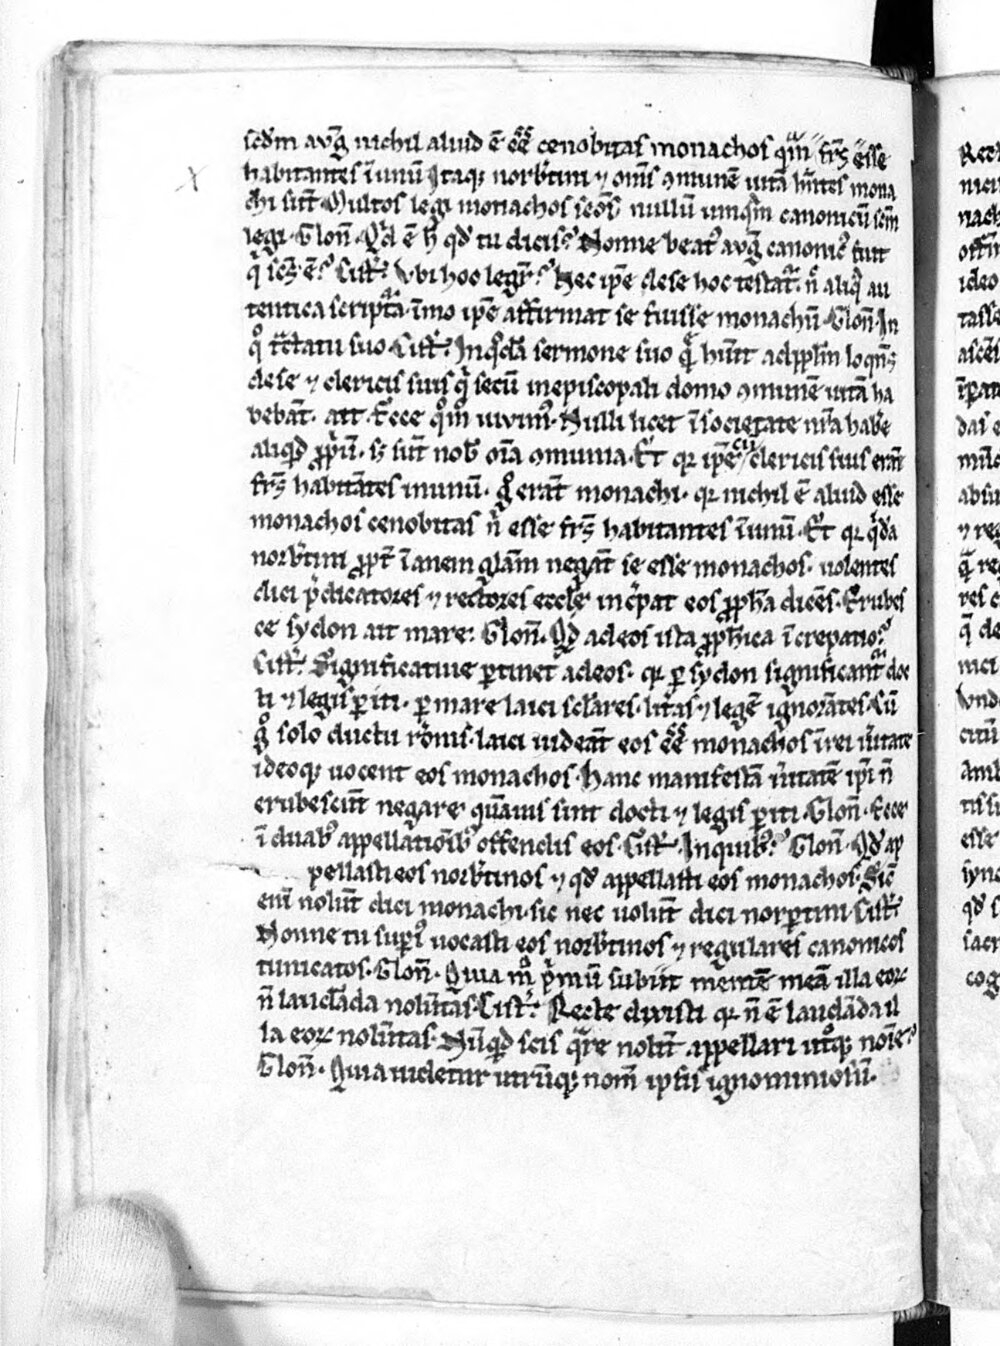 scd̄m avḡ nichil aliud ē eē cenobitas monachos qm̄ frs̄ esse
habitantes ī unū Itaqꝫ norb̄tini ⁊ om̄s ꝯmunē uitā hn̄tes mona
chi sūt. Multos legi monachos scōs nullū umqm̄ canonicū scm̄
legi. Clon̄. Qd̄ ē h̄ qd̄ tu dicis? Nonne beatꝰ avḡ canonicꝰ fuit
q̄ scs̄ ē? Cist̄. Vbi hoc legit̄? Nec ipē de se hoc testat̄. n̄ aliq̄ au
tentica scriptᵃ īmo ipē affirmat se fuisse monachū. Clon̄. In
qͦ tc̄tatu suo. Cist̄. In qͦdā sermone suo qͥ hūit ad pplm̄ loqn̄s
de se ⁊ clericis suis qͥ secū in episcopali domo ꝯmunē uitā ha
bebāt. ait. Ecce qͦm̄ uiuimꝰ. Nulli licet ī societate nr̄a habe
aliqͥd ꝓpͥū. sꝫ sūt nob̄ oīa ꝯmunia. Et qꝛ ipē cū clericis suis erāt
frs̄ habitātes in unū. gͦ erāt monachi. qꝛ nichil ē aliud esse
monachos cenobitas n̄ esse frs̄ habitantes ī unū. Et qꝛ qͥdā
norb̄tini ꝓpt̄ īanem glām negāt se esse monachos. uolentes
dici p̄dicatores ⁊ rectores eccl̄e īcͤpat eos ꝓph̄a dicēs. Erubes
ce sydon ait mare: Clon̄. Qd̄ ad eos ista ꝓph̄ica īcrepatio?
Cist̄. Significatiue ꝑtinet ad eos. qꝛ ꝑ sydon significant̄ doc
ti ⁊ legis ꝑiti. ꝑ mare laici sclāres. litͣs ⁊ legē ignorātes. Cū
gͦ solo ductu rōnis laici uideāt eos eē monachos ī rei ūitate
ideoqꝫ uocent eos monachos. hanc manifestā ūitatē ipi n̄
erubescūt negare quāuis sint docti ⁊ legis ꝑiti. Clon̄. Ecce
ī duabꝰ appellatiōibꝰ offendis eos. Cist̄. In quibꝰ? Clon̄. Qd̄ ap
pellasti eos norb̄tinos ⁊ qd̄ appellasti eos monachos. Sic̄
enī nolūt dici monachi. sic nec uolūt dici norꝑtini. Cist̄.
Nonne tu supͥꝰ uocasti eos norb̄tinos ⁊ regulares canonicos
tunicatos. Clon̄. Quia mͦ p̄mū subiit mentē meā illa eoꝝ
n̄ laudāda nolūtas. Cist̄. Recte dixisti qꝛ n̄ ē laudāda il
la eoꝝ nolūtas. Nūqͥd scis qͣre nolūt appellari utͦqꝫ noīe?
Clon̄. Quia uidetur utrūqꝫ nom̄ ipsis ignominiosū.